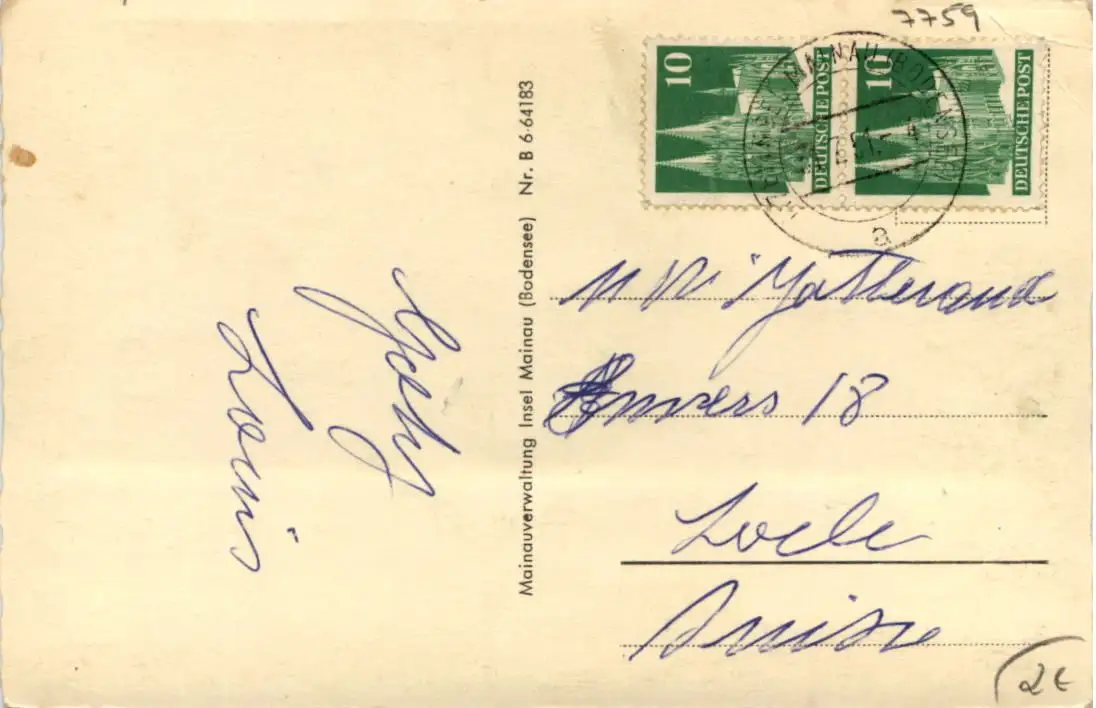 7759
10
DEUTSCHE POST
10
DEUTSCHE POST
MAINAU (BODENSEE)
a
Mainauverwaltung Insel Mainau (Bodensee) Nr. B 6·64183
Louis
Anvers 18
Locle
Suisse
2€